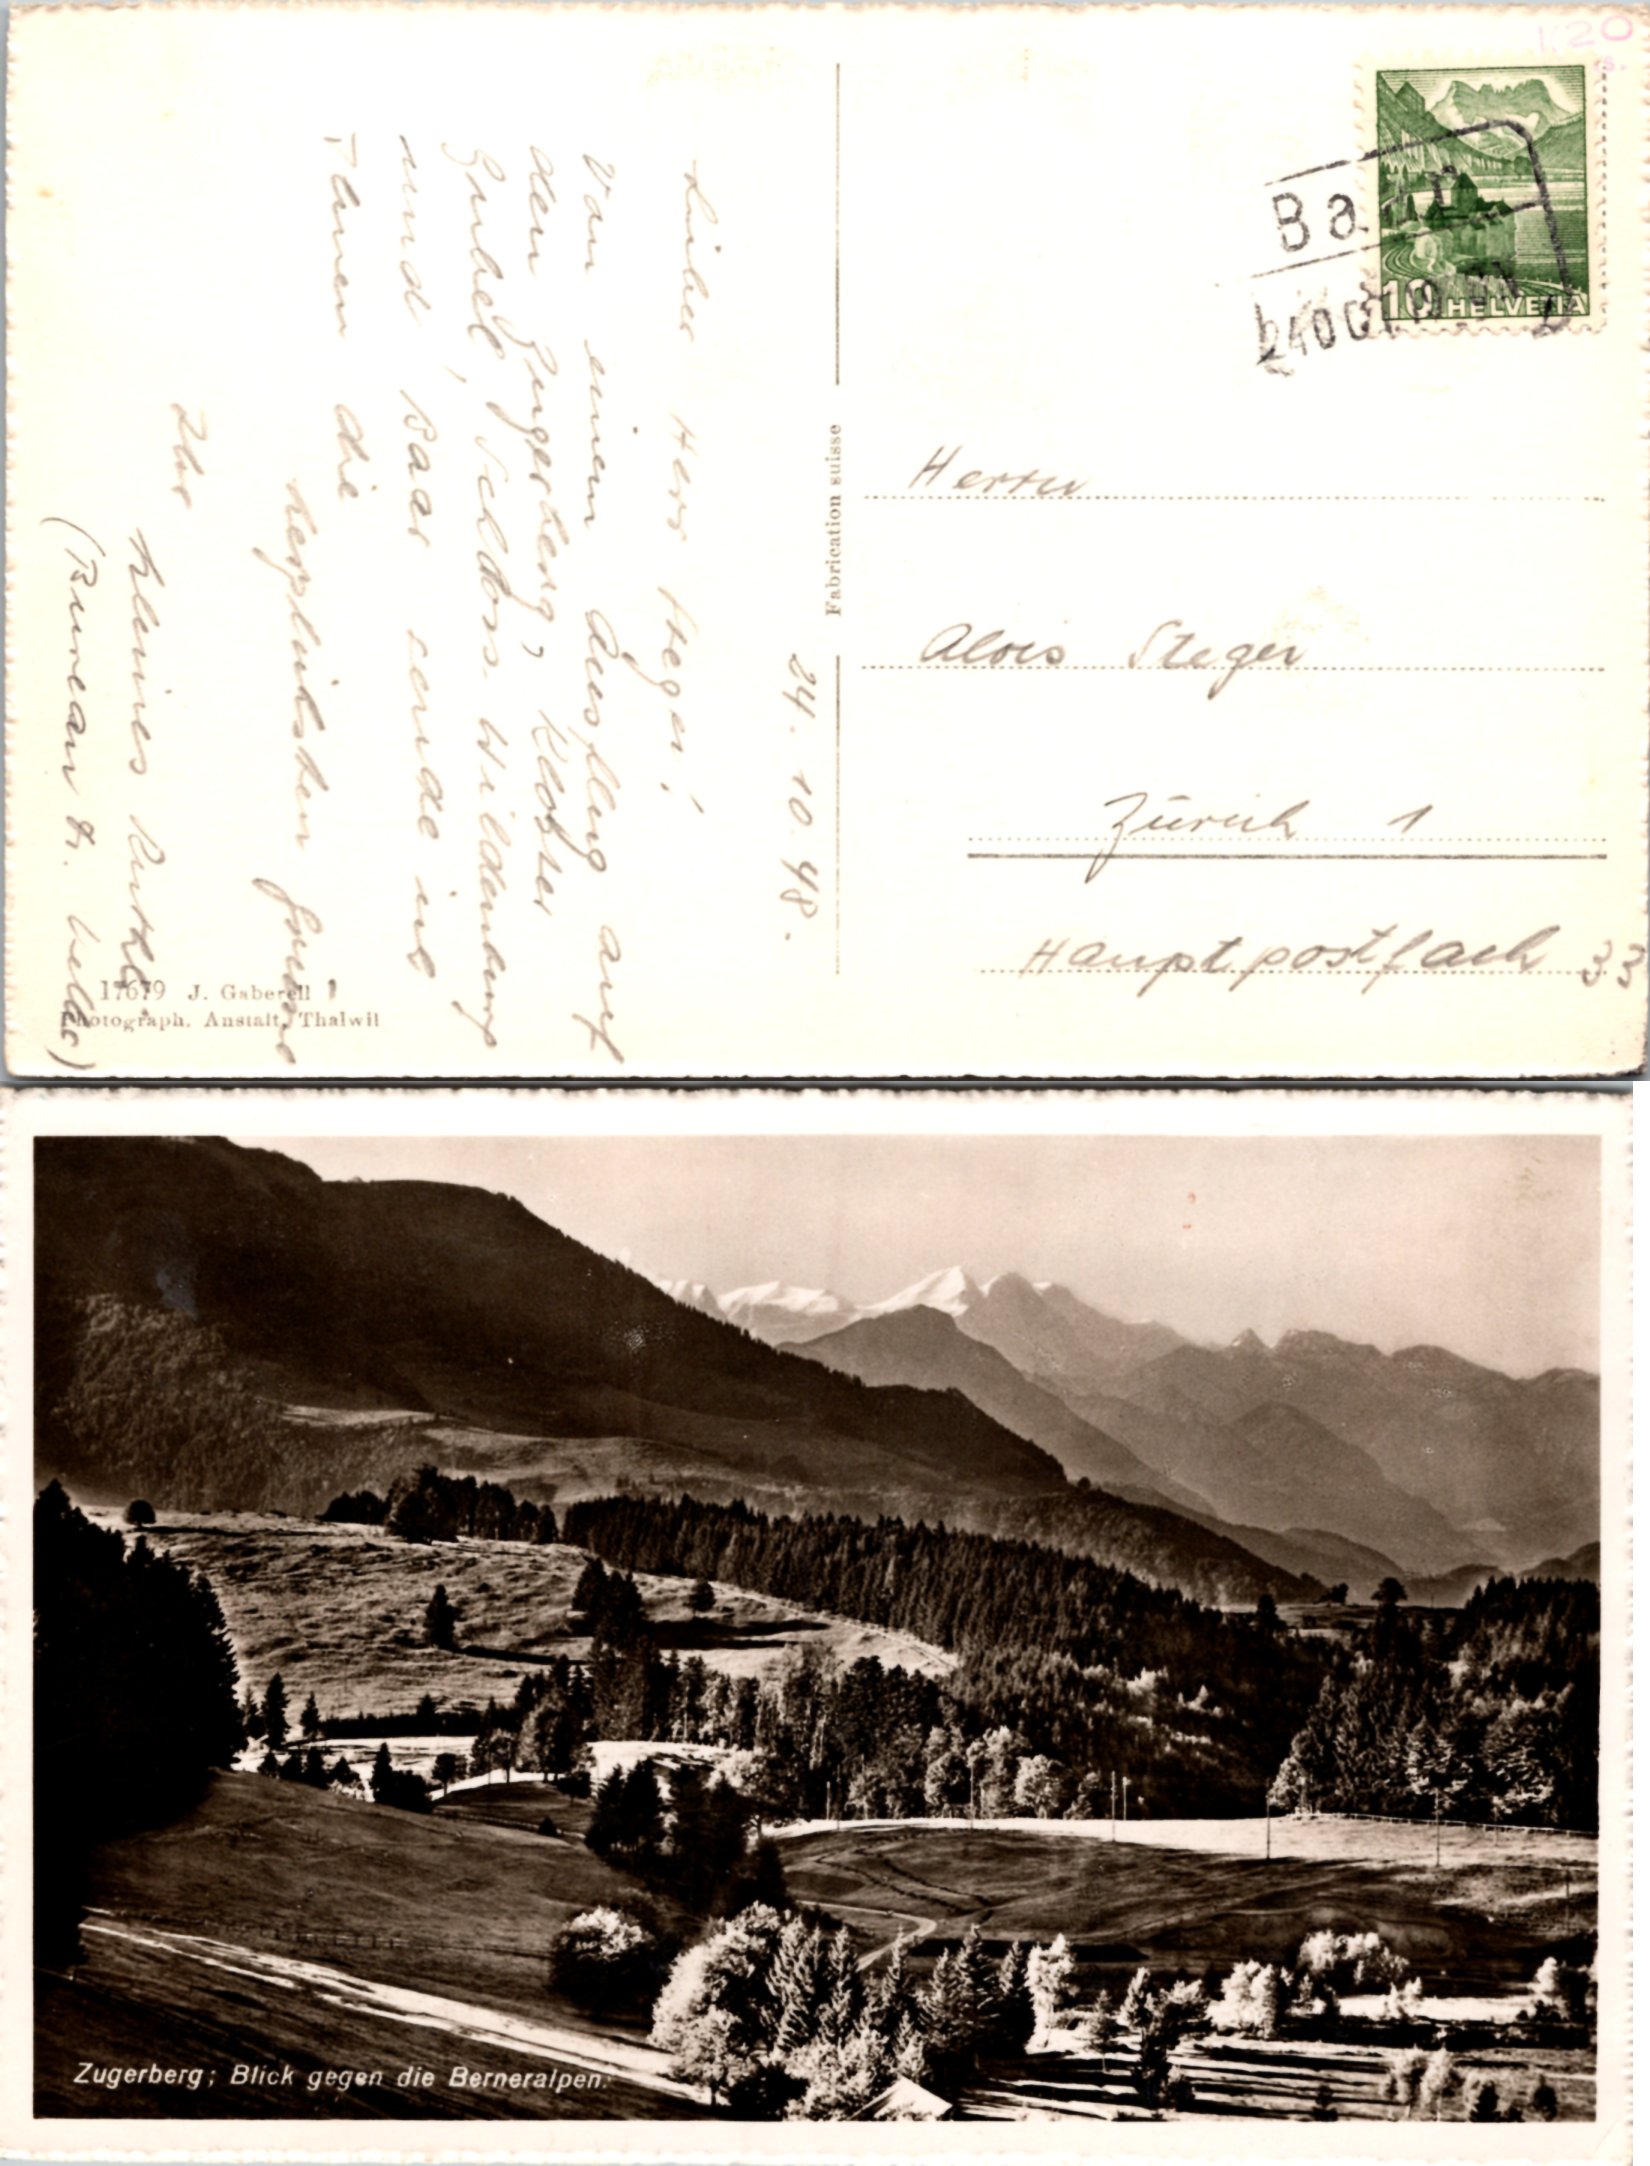 24. 10. 48.
Lieber Herr Steger!
Von einem Ausflug auf
den Zugerberg, Kloster
Gubel, Schloss Wildenburg
und Baar sende ich
Ihnen die
herzlichsten Grüsse
Ihr
kleines
(Bureau Dr.
17679 J. Gaberell
Photograph. Anstalt, Thalwil
Fabrication suisse
1.20
s.
Baar
24 OCT.
10 HELVETIA
Herrn
Alois Steger
Zürich 1
Hauptpostfach 33
Zugerberg; Blick gegen die Berneralpen.